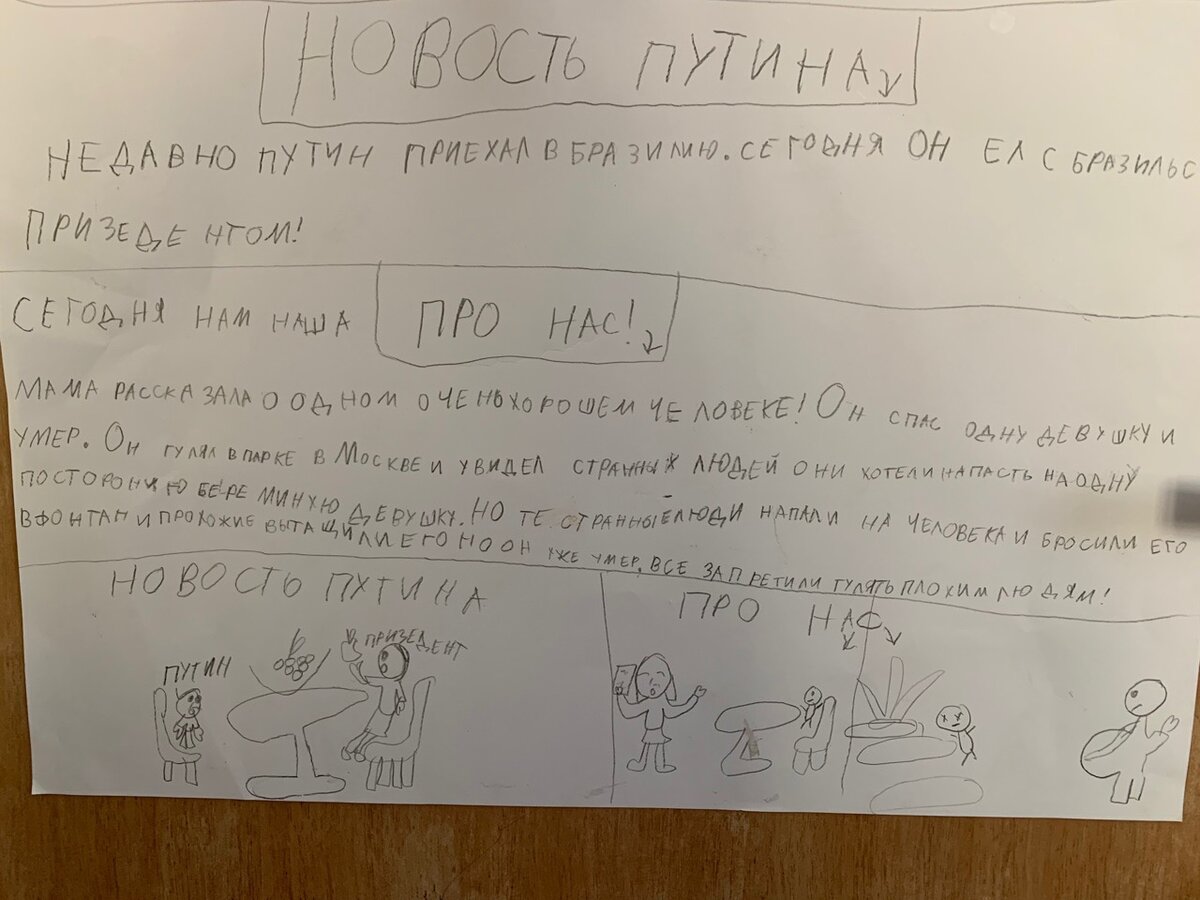 НОВОСТЬ ПУТИНА
НЕДАВНО ПУТИН ПРИЕХАЛ В БРАЗИЛИЮ. СЕГОДНЯ ОН ЕЛ С БРАЗИЛЬС
ПРИЗЕДЕНТОМ!
ПРО НАС!
СЕГОДНЯ НАМ НАША
МАМА РАССКАЗАЛА О ОДНОМ ОЧЕНЬ ХОРОШЕМ ЧЕЛОВЕКЕ! ОН СПАС ОДНУ ДЕВУШКУ И
УМЕР. ОН ГУЛЯЛ В ПАРКЕ В МОСКВЕ И УВИДЕЛ СТРАННЫХ ЛЮДЕЙ ОНИ ХОТЕЛИ НАПАСТЬ НА ОДНУ
ПОСТОРОНЮЮ БЕРЕМИНХЮ ДЕВУШКУ. НО ТЕ СТРАННЫЕ ЛЮДИ НАПАЛИ НА ЧЕЛОВЕКА И БРОСИЛИ ЕГО
В ФОНТАН И ПРОХОЖИЕ ВЫТАЩИЛИ ЕГО НО ОН УЖЕ УМЕР. ВСЕ ЗАПРЕТИЛИ ГУЛЯТЬ ПЛОХИМ ЛЮДЯМ!
НОВОСТЬ ПУТИНА
ПУТИН
ПРИЗЕДЕНТ
ПРО НАС